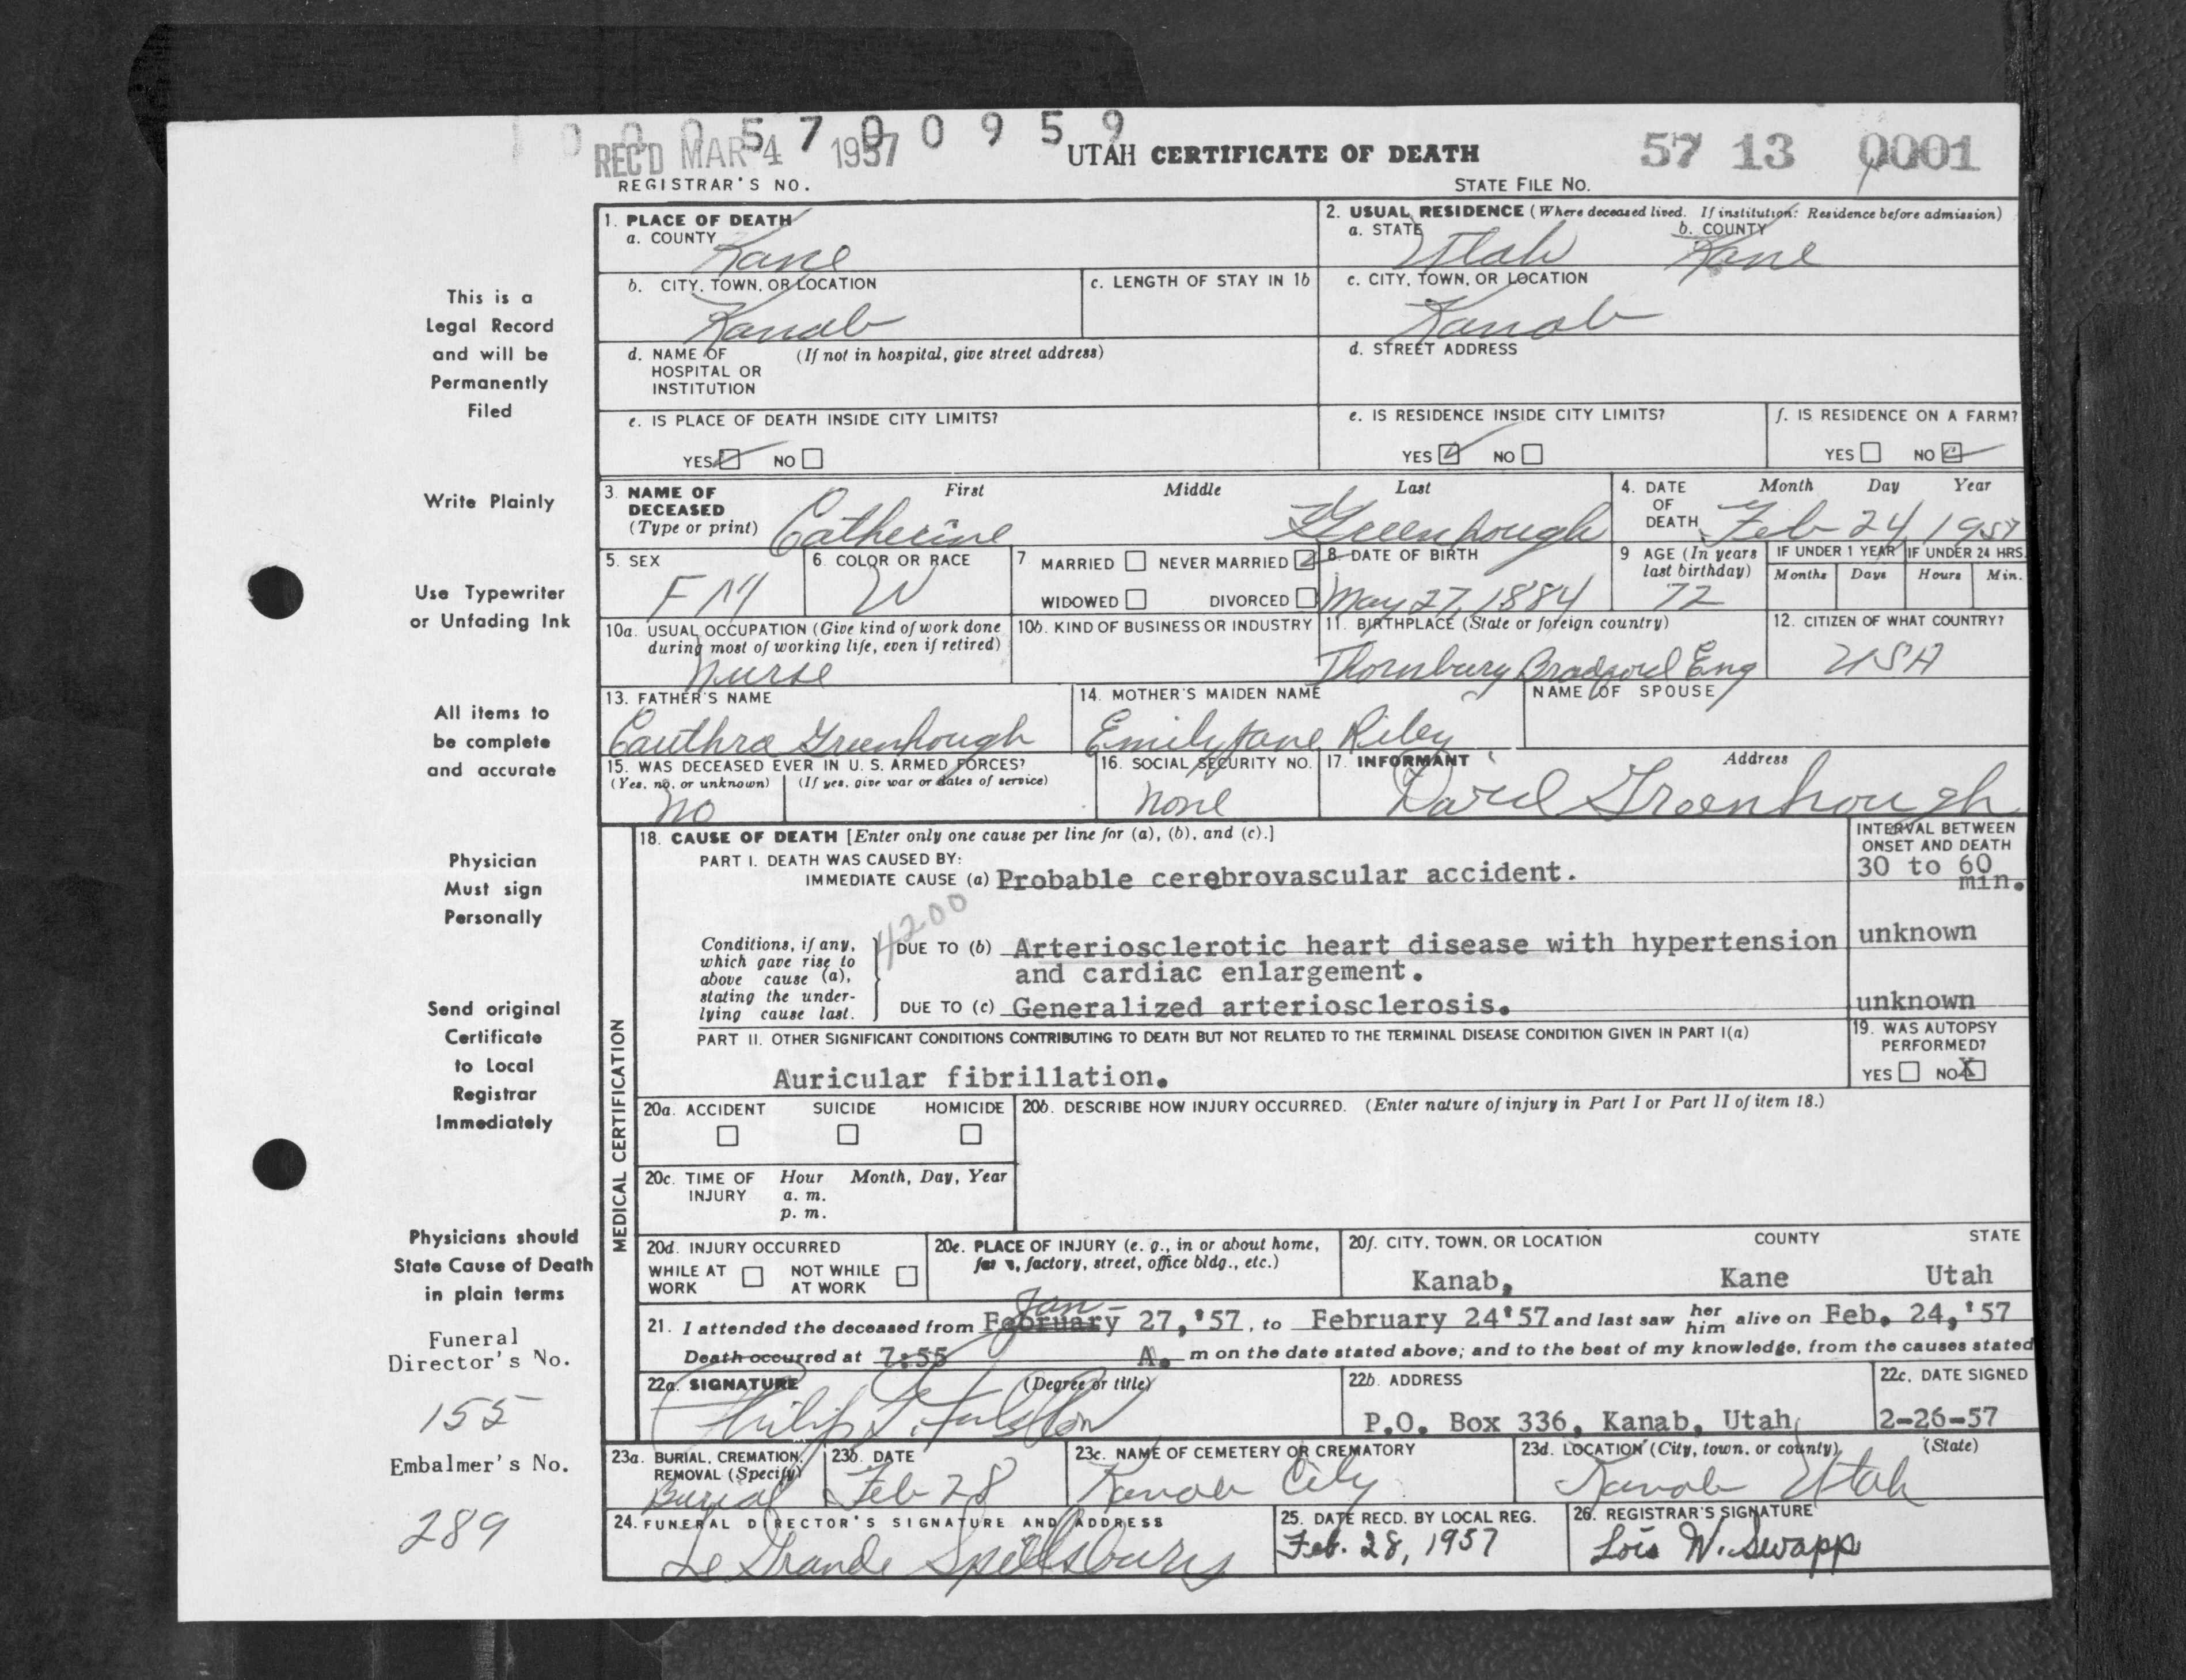 1 0 0 0 5 7 0 0 9 5 9
REC'D MAR 4 1957
UTAH CERTIFICATE OF DEATH
57 13 0001
REGISTRAR'S NO.
STATE FILE NO.
This is a
Legal Record
and will be
Permanently
Filed
Write Plainly
Use Typewriter
or Unfading Ink
All items to
be complete
and accurate
Physician
Must sign
Personally
Send original
Certificate
to Local
Registrar
Immediately
Physicians should
State Cause of Death
in plain terms
Funeral
Director's No.
155
Embalmer's No.
289
1. PLACE OF DEATH
a. COUNTY
Kane
2. USUAL RESIDENCE (Where deceased lived. If institution: Residence before admission)
a. STATE Utah b. COUNTY Kane
b. CITY, TOWN, OR LOCATION
Kanab
c. LENGTH OF STAY IN 1b
c. CITY, TOWN, OR LOCATION
Kanab
d. NAME OF (If not in hospital, give street address)
HOSPITAL OR
INSTITUTION
d. STREET ADDRESS
e. IS PLACE OF DEATH INSIDE CITY LIMITS?
YES NO
e. IS RESIDENCE INSIDE CITY LIMITS?
YES NO
f. IS RESIDENCE ON A FARM?
YES NO
3. NAME OF First Middle Last
DECEASED
(Type or print) Catherine Greenhough
4. DATE Month Day Year
OF
DEATH Feb 24, 1957
5. SEX
FM
6. COLOR OR RACE
W
7 MARRIED NEVER MARRIED
WIDOWED DIVORCED
8. DATE OF BIRTH
May 27, 1884
9 AGE (In years
last birthday)
72
IF UNDER 1 YEAR
Months Days
IF UNDER 24 HRS.
Hours Min.
10a. USUAL OCCUPATION (Give kind of work done
during most of working life, even if retired)
Nurse
10b. KIND OF BUSINESS OR INDUSTRY
11. BIRTHPLACE (State or foreign country)
Thornbury Bradford Eng
12. CITIZEN OF WHAT COUNTRY?
USA
13. FATHER'S NAME
Cauthra Greenhough
14. MOTHER'S MAIDEN NAME
Emily Jane Riley
NAME OF SPOUSE
15. WAS DECEASED EVER IN U. S. ARMED FORCES?
(Yes, no, or unknown) (If yes, give war or dates of service)
No
16. SOCIAL SECURITY NO.
None
17. INFORMANT Address
Greenhough
MEDICAL CERTIFICATION
18. CAUSE OF DEATH [Enter only one cause per line for (a), (b), and (c).]
INTERVAL BETWEEN
ONSET AND DEATH
PART I. DEATH WAS CAUSED BY:
IMMEDIATE CAUSE (a) Probable cerebrovascular accident.
30 to 60
min.
4200
Conditions, if any,
which gave rise to
above cause (a),
stating the under-
lying cause last.
DUE TO (b) Arteriosclerotic heart disease with hypertension
and cardiac enlargement.
unknown
DUE TO (c) Generalized arteriosclerosis.
unknown
PART II. OTHER SIGNIFICANT CONDITIONS CONTRIBUTING TO DEATH BUT NOT RELATED TO THE TERMINAL DISEASE CONDITION GIVEN IN PART I(a)
Auricular fibrillation.
19. WAS AUTOPSY
PERFORMED?
YES NO X
20a. ACCIDENT SUICIDE HOMICIDE
20b. DESCRIBE HOW INJURY OCCURRED. (Enter nature of injury in Part I or Part II of item 18.)
20c. TIME OF Hour Month, Day, Year
INJURY a. m.
p. m.
20d. INJURY OCCURRED
WHILE AT NOT WHILE
WORK AT WORK
20e. PLACE OF INJURY (e. g., in or about home,
farm, factory, street, office bldg., etc.)
20f. CITY, TOWN, OR LOCATION COUNTY STATE
Kanab, Kane Utah
Jan-
21. I attended the deceased from February 27,'57, to February 24'57 and last saw her him alive on Feb. 24,'57
Death occurred at 7:55 A. m on the date stated above; and to the best of my knowledge, from the causes stated
22a. SIGNATURE (Degree or title)
Philip
22b. ADDRESS
P.O. Box 336, Kanab, Utah
22c. DATE SIGNED
2-26-57
23a. BURIAL, CREMATION,
REMOVAL (Specify)
Burial
23b. DATE
Feb 28
23c. NAME OF CEMETERY OR CREMATORY
Kanab City
23d. LOCATION (City, town, or county) (State)
Kanab Utah
24. FUNERAL DIRECTOR'S SIGNATURE AND ADDRESS
Le Grande Spillsbury
25. DATE RECD. BY LOCAL REG.
Feb. 28, 1957
26. REGISTRAR'S SIGNATURE
Lois W. Swapp